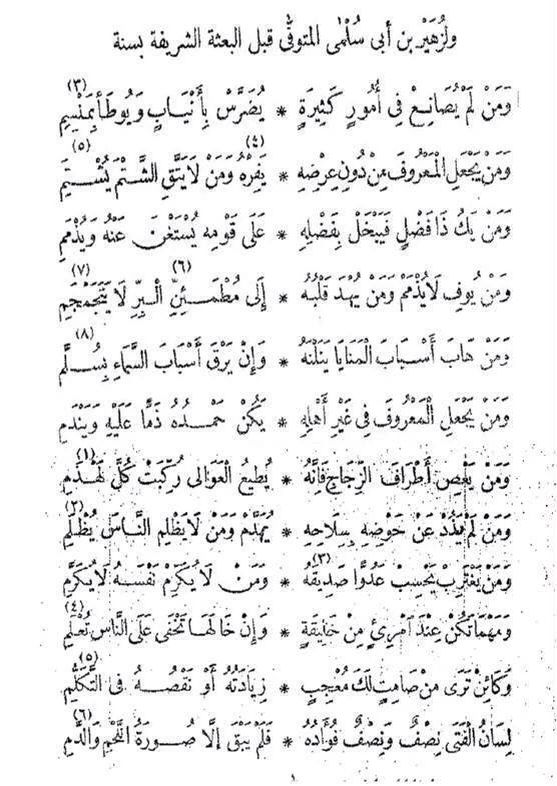 ولزُهَيْر بن أبى سُلْمٰى المتوفَّى قبل البعثة الشريفة بسنة
(٣)
وَمَنْ لَمْ يُصَانِعْ فِى أُمُورٍ كَثِيرَةٍ * يُضَرَّسْ بِأَنْيَابٍ وَيُوطَأْ بِمَنْسِمِ
(٤) (٥)
وَمَنْ يَجْعَلِ الْمَعْرُوفَ مِنْ دُونِ عِرْضِهِ * يَفِرْهُ وَمَنْ لَا يَتَّقِ الشَّتْمَ يُشْتَمِ
وَمَنْ يَكُ ذَا فَضْلٍ فَيَبْخَلْ بِفَضْلِهِ * عَلَى قَوْمِهِ يُسْتَغْنَ عَنْهُ وَيُذْمَمِ
(٦) (٧)
وَمَنْ يُوفِ لَا يُذْمَمْ وَمَنْ يُهْدَ قَلْبُهُ * إِلَى مُطْمَئِنِّ الْبِرِّ لَا يَتَجَمْجَمِ
(٨)
وَمَنْ هَابَ أَسْبَابَ الْمَنَايَا يَنَلْنَهُ * وَإِنْ يَرْقَ أَسْبَابَ السَّمَاءِ بِسُلَّمِ
وَمَنْ يَجْعَلِ الْمَعْرُوفَ فِى غَيْرِ أَهْلِهِ * يَكُنْ حَمْدُهُ ذَمًّا عَلَيْهِ وَيَنْدَمِ
(١)
وَمَنْ يَعْصِ أَطْرَافَ الزِّجَاجِ فَإِنَّهُ * يُطِيعُ الْعَوَالِى رُكِّبَتْ كُلَّ لَهْذَمِ
(٢)
وَمَنْ لَمْ يَذُدْ عَنْ حَوْضِهِ بِسِلَاحِهِ * يُهَدَّمْ وَمَنْ لَا يَظْلِمِ النَّاسَ يُظْلَمِ
(٣)
وَمَنْ يَغْتَرِبْ يَحْسِبْ عَدُوًّا صَدِيقَهُ * وَمَنْ لَا يُكَرِّمْ نَفْسَهُ لَا يُكَرَّمِ
(٤)
وَمَهْمَا تَكُنْ عِنْدَ امْرِئٍ مِنْ خَلِيقَةٍ * وَإِنْ خَالَهَا تَخْفَى عَلَى النَّاسِ تُعْلَمِ
(٥)
وَكَائِنْ تَرَى مِنْ صَامِتٍ لَكَ مُعْجِبٍ * زِيَادَتُهُ أَوْ نَقْصُهُ فِى التَّكَلُّمِ
(٦)
لِسَانُ الْفَتَى نِصْفٌ وَنِصْفٌ فُؤَادُهُ * فَلَمْ يَبْقَ إِلَّا صُورَةُ اللَّحْمِ وَالدَّمِ